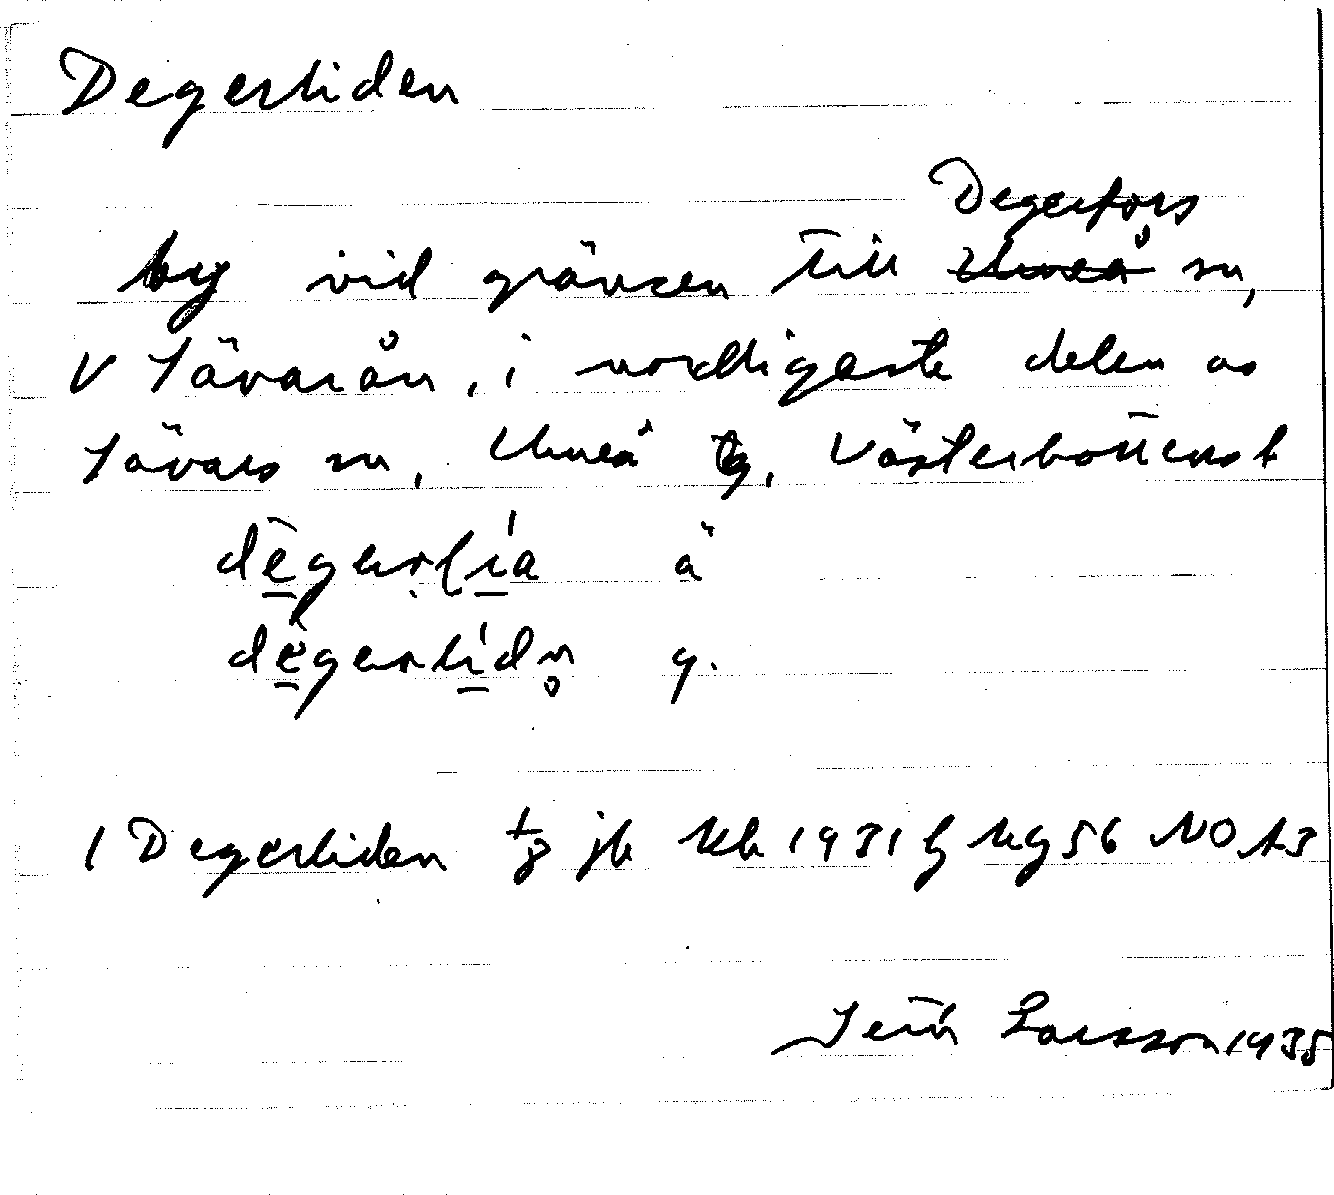 Degerliden
Degerfors
by vid gränsen till Umeå sn,
V Tävarån, i nordligaste delen av
Tävars sn, Umeå tg, Västerbottens l
dēgerlía ä
dēgerlídn̥ y.
1 Degerliden jb 1931 56 NO A3
Larsson 1935